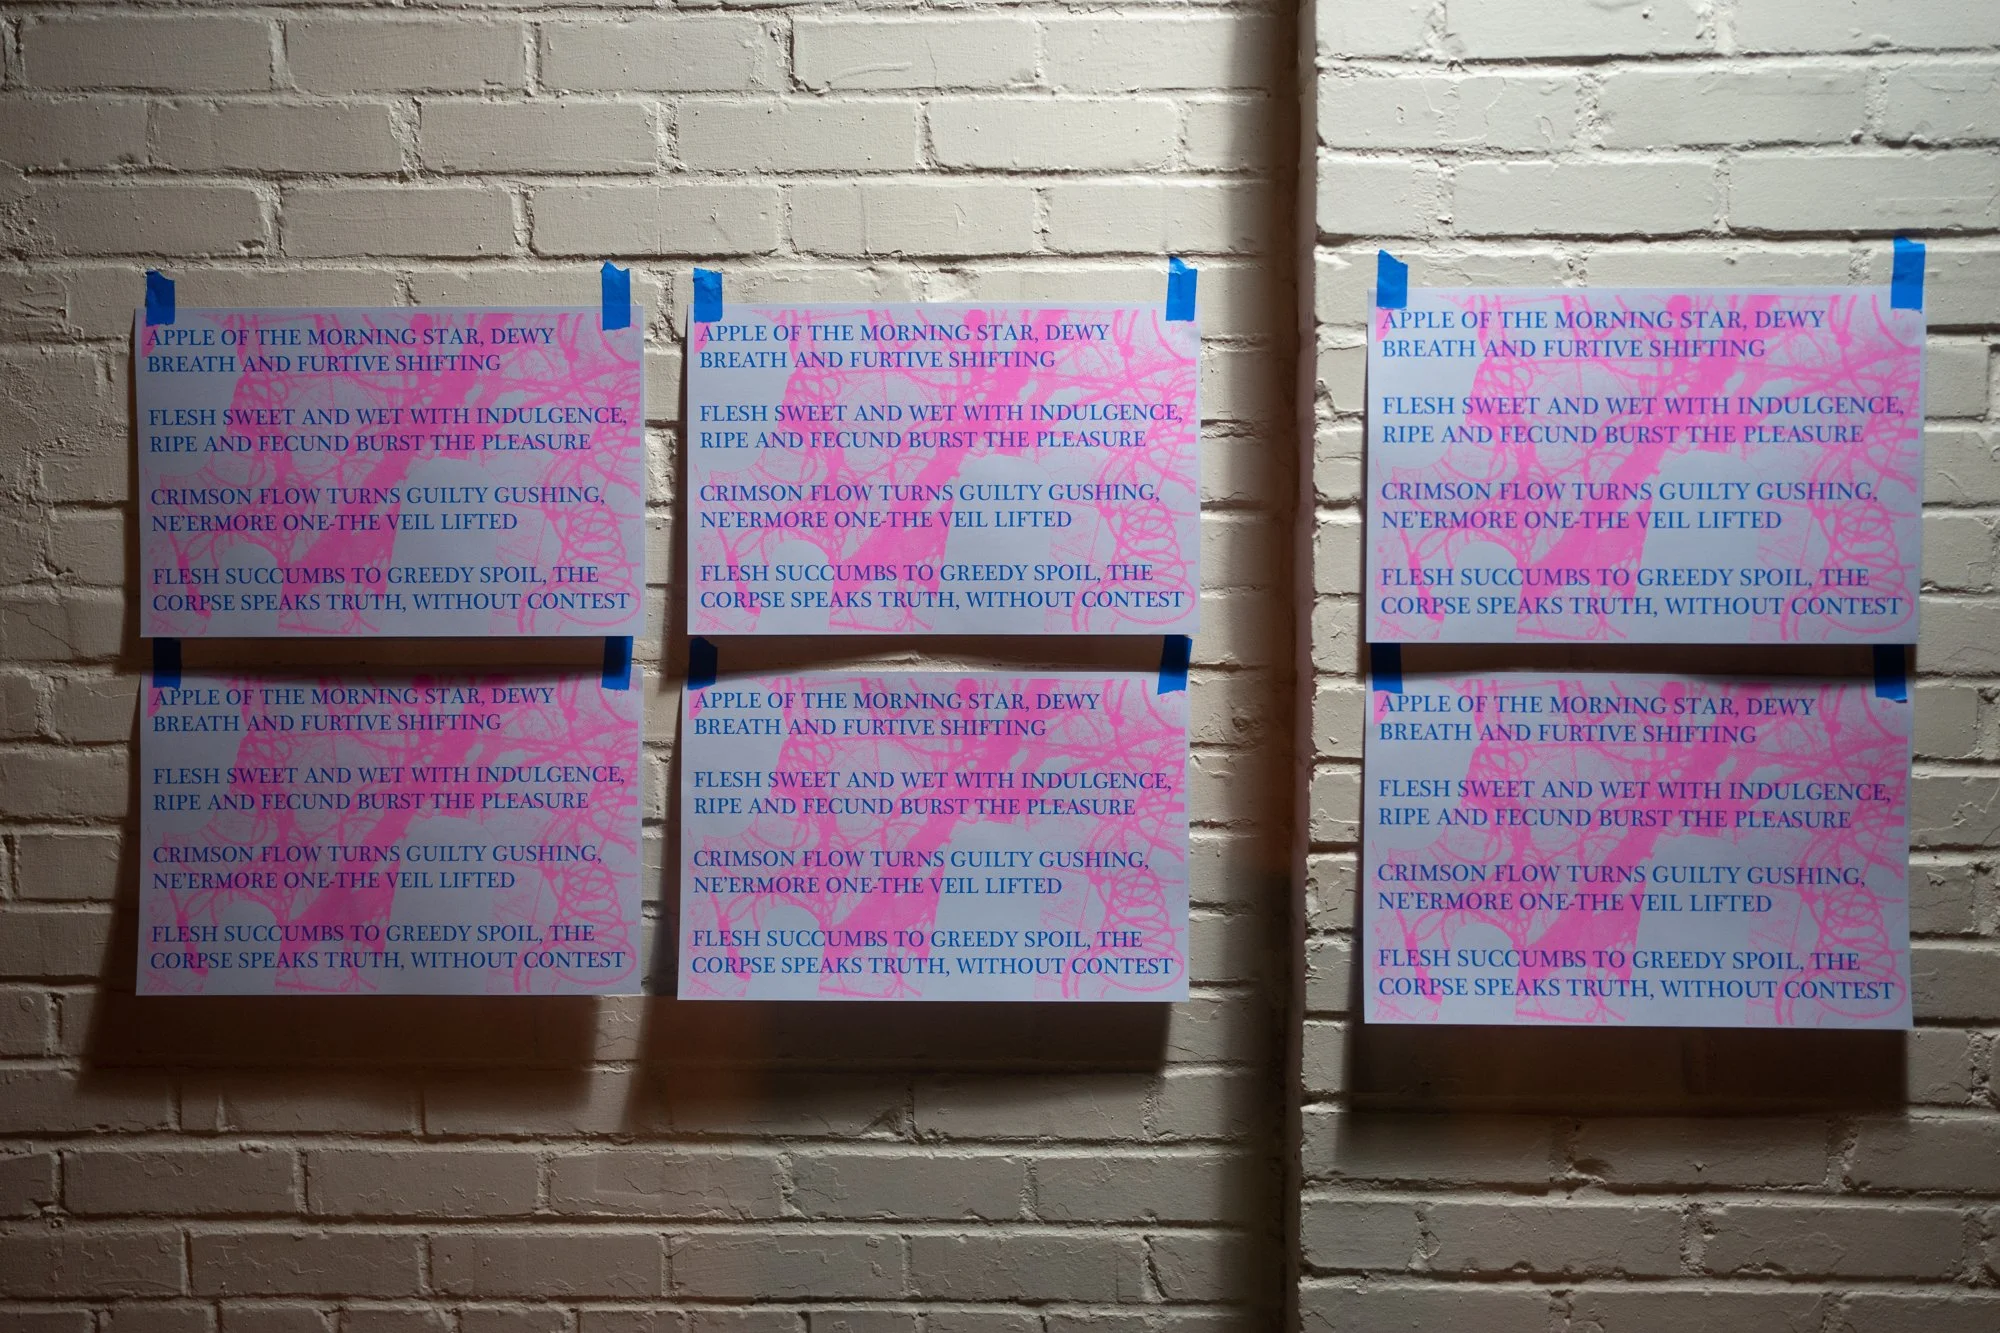 APPLE OF THE MORNING STAR, DEWY
BREATH AND FURTIVE SHIFTING
FLESH SWEET AND WET WITH INDULGENCE,
RIPE AND FECUND BURST THE PLEASURE
CRIMSON FLOW TURNS GUILTY GUSHING,
NE'ERMORE ONE-THE VEIL LIFTED
FLESH SUCCUMBS TO GREEDY SPOIL, THE
CORPSE SPEAKS TRUTH, WITHOUT CONTEST
APPLE OF THE MORNING STAR, DEWY
BREATH AND FURTIVE SHIFTING
FLESH SWEET AND WET WITH INDULGENCE,
RIPE AND FECUND BURST THE PLEASURE
CRIMSON FLOW TURNS GUILTY GUSHING,
NE'ERMORE ONE-THE VEIL LIFTED
FLESH SUCCUMBS TO GREEDY SPOIL, THE
CORPSE SPEAKS TRUTH, WITHOUT CONTEST
APPLE OF THE MORNING STAR, DEWY
BREATH AND FURTIVE SHIFTING
FLESH SWEET AND WET WITH INDULGENCE,
RIPE AND FECUND BURST THE PLEASURE
CRIMSON FLOW TURNS GUILTY GUSHING,
NE'ERMORE ONE-THE VEIL LIFTED
FLESH SUCCUMBS TO GREEDY SPOIL, THE
CORPSE SPEAKS TRUTH, WITHOUT CONTEST
APPLE OF THE MORNING STAR, DEWY
BREATH AND FURTIVE SHIFTING
FLESH SWEET AND WET WITH INDULGENCE,
RIPE AND FECUND BURST THE PLEASURE
CRIMSON FLOW TURNS GUILTY GUSHING,
NE'ERMORE ONE-THE VEIL LIFTED
FLESH SUCCUMBS TO GREEDY SPOIL, THE
CORPSE SPEAKS TRUTH, WITHOUT CONTEST
APPLE OF THE MORNING STAR, DEWY
BREATH AND FURTIVE SHIFTING
FLESH SWEET AND WET WITH INDULGENCE,
RIPE AND FECUND BURST THE PLEASURE
CRIMSON FLOW TURNS GUILTY GUSHING,
NE'ERMORE ONE-THE VEIL LIFTED
FLESH SUCCUMBS TO GREEDY SPOIL, THE
CORPSE SPEAKS TRUTH, WITHOUT CONTEST
APPLE OF THE MORNING STAR, DEWY
BREATH AND FURTIVE SHIFTING
FLESH SWEET AND WET WITH INDULGENCE,
RIPE AND FECUND BURST THE PLEASURE
CRIMSON FLOW TURNS GUILTY GUSHING,
NE'ERMORE ONE-THE VEIL LIFTED
FLESH SUCCUMBS TO GREEDY SPOIL, THE
CORPSE SPEAKS TRUTH, WITHOUT CONTEST